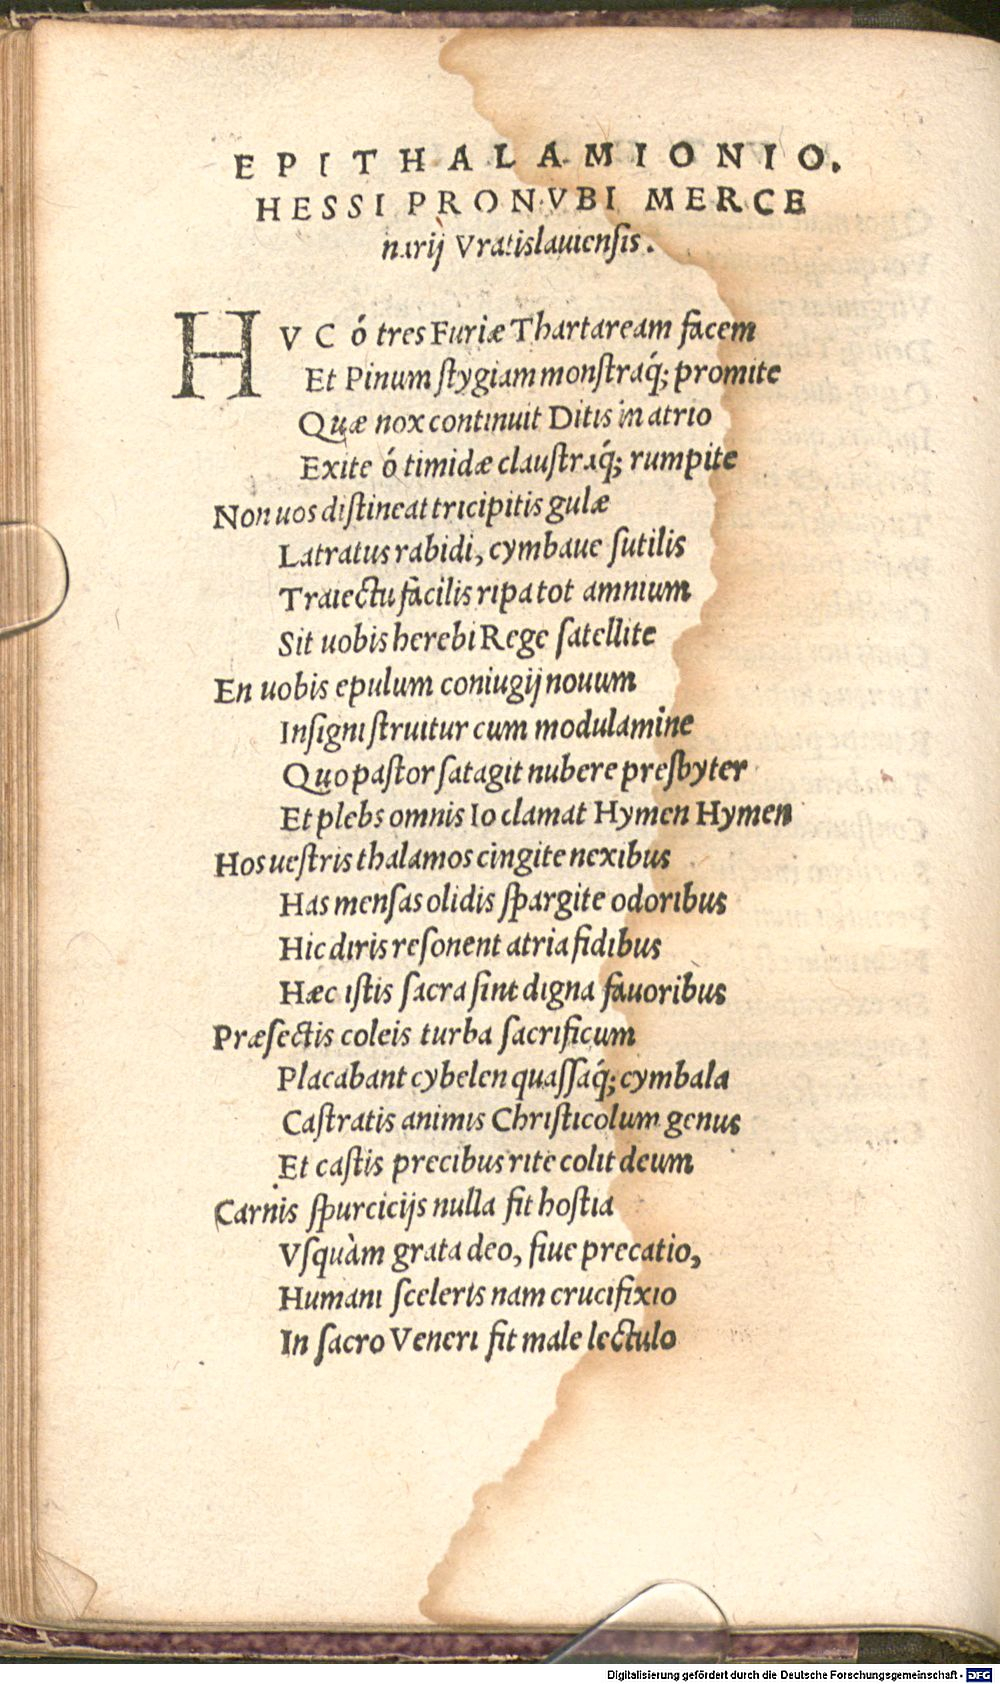 EPITHALAMIONIO.
HESSI PRONVBI MERCE
narij Vratislauiensis.
HVC ó tres Furiæ Thartaream facem
Et Pinum ſtygiam monſtraq́; promite
Quæ nox continuit Ditis in atrio
Exite ó timidæ clauſtraq́; rumpite
Non uos diſtineat tricipitis gulæ
Latratus rabidi, cymbaue ſutilis
Traiectu facilis ripa tot amnium
Sit uobis herebi Rege ſatellite
En uobis epulum coniugij nouum
Inſigni ſtruitur cum modulamine
Quo paſtor ſatagit nubere presbyter
Et plebs omnis Io clamat Hymen Hymen
Hos ueſtris thalamos cingite nexibus
Has menſas olidis ſpargite odoribus
Hic diris reſonent atria fidibus
Hæc iſtis ſacra ſint digna fauoribus
Præſectis coleis turba ſacrificum
Placabant cybelen quaſſaq́; cymbala
Caſtratis animis Chriſticolum genus
Et caſtis precibus rite colit deum
Carnis ſpurcicijs nulla fit hoſtia
Vſquàm grata deo, ſiue precatio,
Humani ſceleris nam crucifixio
In ſacro Veneri fit male lectulo
Digitalisierung gefördert durch die Deutsche Forschungsgemeinschaft - DFG